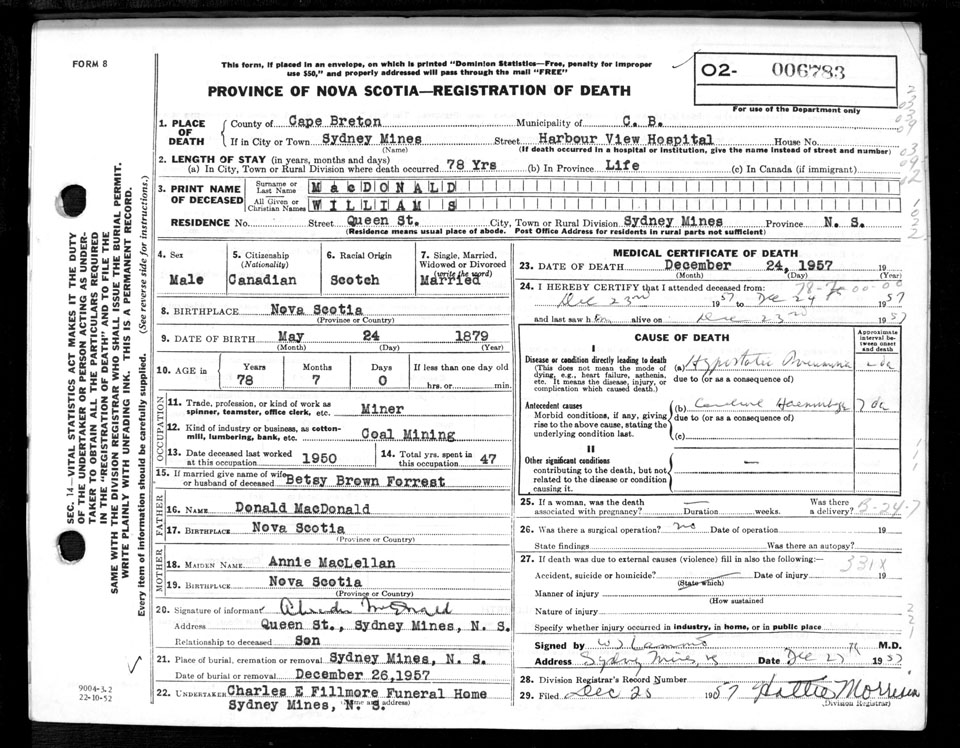 FORM 8
This form, if placed in an envelope, on which is printed "Dominion Statistics—Free, penalty for improper
use $50," and properly addressed will pass through the mail "FREE"
PROVINCE OF NOVA SCOTIA—REGISTRATION OF DEATH
O2- 006783
For use of the Department only
1. PLACE OF DEATH County of Cape Breton Municipality of C. B.
If in City or Town Sydney Mines Street Harbour View Hospital House No.
(Name) (If death occurred in a hospital or institution, give the name instead of street and number)
2. LENGTH OF STAY (in years, months and days)
(a) In City, Town or Rural Division where death occurred 78 Yrs (b) In Province Life (c) In Canada (if immigrant)
3. PRINT NAME OF DECEASED Surname or Last Name MacDONALD
All Given or Christian Names WILLIAM S
RESIDENCE No. Street Queen St. City, Town or Rural Division Sydney Mines Province N. S.
(Residence means usual place of abode. Post Office Address for residents in rural parts not sufficient)
4. Sex Male
5. Citizenship (Nationality) Canadian
6. Racial Origin Scotch
7. Single, Married, Widowed or Divorced (write the word) Married
8. BIRTHPLACE Nova Scotia
(Province or Country)
9. DATE OF BIRTH May 24 1879
(Month) (Day) (Year)
10. AGE in Years 78 Months 7 Days 0 If less than one day old hrs. or min.
OCCUPATION
11. Trade, profession, or kind of work as spinner, teamster, office clerk, etc. Miner
12. Kind of industry or business, as cotton-mill, lumbering, bank, etc. Coal Mining
13. Date deceased last worked at this occupation 1950
14. Total yrs. spent in this occupation 47
15. If married give name of wife or husband of deceased Betsy Brown Forrest
FATHER
16. NAME Donald MacDonald
17. BIRTHPLACE Nova Scotia
(Province or Country)
MOTHER
18. MAIDEN NAME Annie MacLellan
19. BIRTHPLACE Nova Scotia
(Province or Country)
20. Signature of informant
Address Queen St., Sydney Mines, N. S.
Relationship to deceased Son
21. Place of burial, cremation or removal Sydney Mines, N. S.
Date of burial or removal December 26,1957
22. UNDERTAKER Charles E Fillmore Funeral Home
Sydney Mines, N. S.
(Name and address)
MEDICAL CERTIFICATE OF DEATH
23. DATE OF DEATH December 24, 1957 19
(Month) (Day) (Year)
24. I HEREBY CERTIFY that I attended deceased from:
Dec 23rd 1957 to Dec 24 1957
and last saw h alive on Dec 23rd 1957
CAUSE OF DEATH
Approximate interval between onset and death
I
Disease or condition directly leading to death
(This does not mean the mode of dying, e.g., heart failure, asthenia, etc. It means the disease, injury, or complication which caused death.)
(a) Hypostatic Pneumonia
due to (or as a consequence of)
Antecedent causes
Morbid conditions, if any, giving rise to the above cause, stating the underlying condition last.
(b)
due to (or as a consequence of)
(c)
II
Other significant conditions
contributing to the death, but not related to the disease or condition causing it.
25. If a woman, was the death associated with pregnancy? Duration weeks. Was there a delivery?
26. Was there a surgical operation? no Date of operation 19
State findings Was there an autopsy?
27. If death was due to external causes (violence) fill in also the following:—
331X
Accident, suicide or homicide? Date of injury 19
(State which)
Manner of injury
(How sustained)
Nature of injury
Specify whether injury occurred in industry, in home, or in public place
Signed by M.D.
Address Sydney Mines Date Dec 27 1957
28. Division Registrar's Record Number
29. Filed Dec 25 1957 Hattie Morrison
(Division Registrar)
SEC. 14—VITAL STATISTICS ACT MAKES IT THE DUTY
OF THE UNDERTAKER OR PERSON ACTING AS UNDER-
TAKER TO OBTAIN ALL THE PARTICULARS REQUIRED
IN THE "REGISTRATION OF DEATH" AND TO FILE THE
SAME WITH THE DIVISION REGISTRAR WHO SHALL ISSUE THE BURIAL PERMIT.
WRITE PLAINLY WITH UNFADING INK. THIS IS A PERMANENT RECORD.
Every item of information should be carefully supplied. (See reverse side for instructions.)
9004-3.2
22-10-52